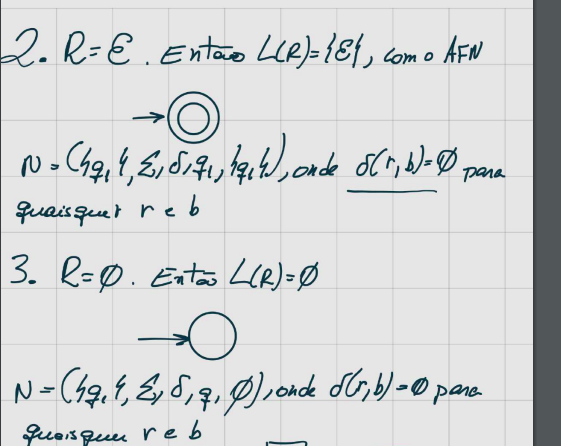 2. R=ε. Então L(R)={ε}, com o AFN
N=({q₁}, Σ, δ, q₁, {q₁}), onde δ(r,b)=∅ para
quaisquer r e b
3. R=∅. Então L(R)=∅
N=({q}, Σ, δ, q, ∅), onde δ(r,b)=∅ para
quaisquer r e b